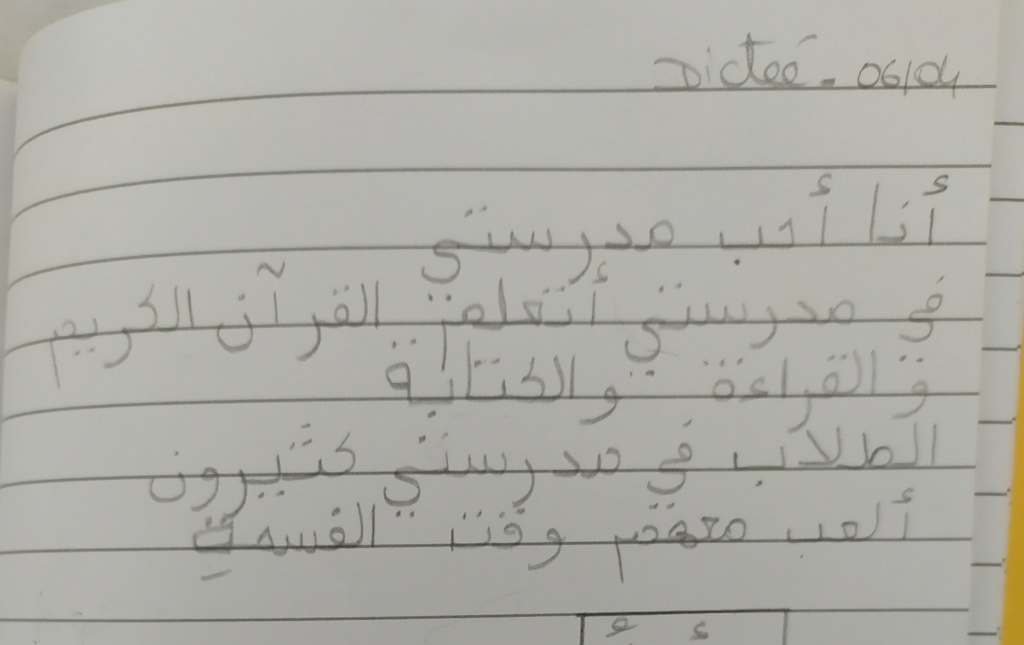 Dicteé - 06/04
أنا أحب مدرستي
في مدرستي أتعلم القرآن الكريم
و القراءة و الكتابة
الطلاب في مدرستي كثيرون
ألعب معهم وقت الفسحة